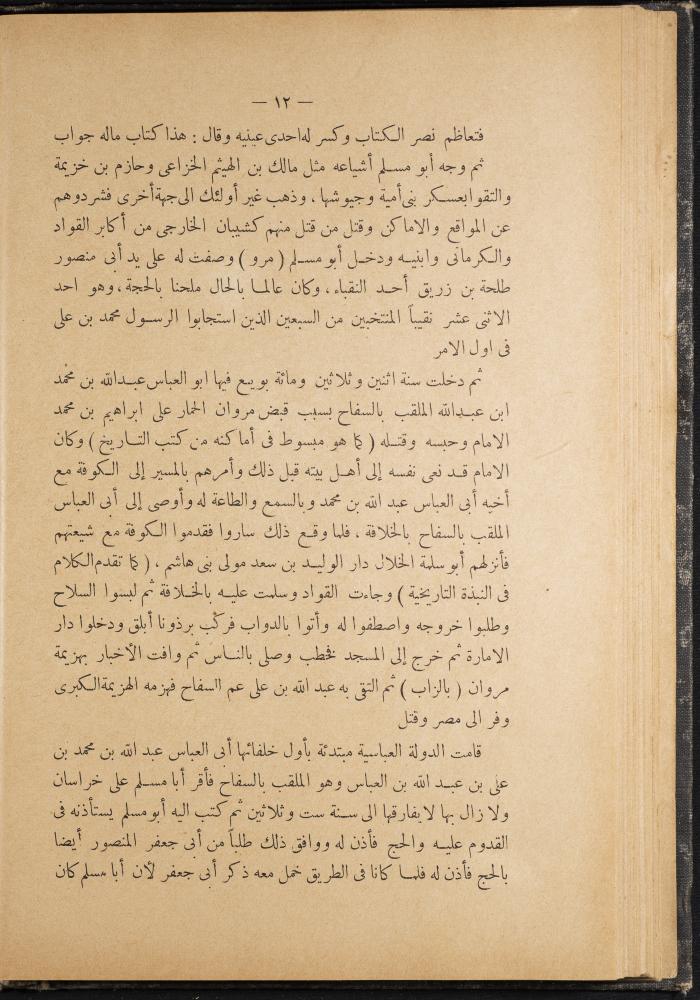 — ١٢ —
فتعاظم نصر الكتاب وكسر له احدى عينيه وقال : هذا كتاب ماله جواب
ثم وجه أبو مسلم أشياعه مثل مالك بن الهيثم الخزاعى وحازم بن خزيمة
والتقوا بعسكر بنى أمية وجيوشها ، وذهب غير أولئك الى جهة أخرى فشردوهم
عن المواقع والاماكن وقتل من قتل منهم كشيبان الخارجى من أكابر القواد
والكرمانى وابنيه ودخل أبو مسلم ( مرو ) وصفت له على يد أبى منصور
طلحة بن زريق أحد النقباء ، وكان عالما بالحال ملحنا بالحجة ، وهو احد
الاثنى عشر نقيباً المنتخبين من السبعين الذين استجابوا الرسول محمد بن على
فى اول الامر
ثم دخلت سنة اثنين وثلاثين ومائة بويع فيها ابو العباس عبد الله بن محمد
ابن عبد الله الملقب بالسفاح بسبب قبض مروان الحمار على ابراهيم بن محمد
الامام وحبسه وقتله ( كما هو مبسوط فى أماكنه من كتب التاريخ ) وكان
الامام قد نعى نفسه إلى أهل بيته قبل ذلك وأمرهم بالمسير إلى الكوفة مع
أخيه أبى العباس عبد الله بن محمد وبالسمع والطاعة له وأوصى إلى أبى العباس
الملقب بالسفاح بالخلافة ، فلما وقع ذلك ساروا فقدموا الكوفة مع شيعتهم
فأنزلهم أبو سلمة الخلال دار الوليد بن سعد مولى بنى هاشم ، ( كما تقدم الكلام
فى النبذة التاريخية ) وجاءت القواد وسلمت عليه بالخلافة ثم لبسوا السلاح
وطلبوا خروجه واصطفوا له وأتوا بالدواب فركب برذونا أبلق ودخلوا دار
الامارة ثم خرج إلى المسجد فخطب وصلى بالناس ثم وافت الأخبار بهزيمة
مروان ( بالزاب ) ثم التقى به عبد الله بن على عم السفاح فهزمه الهزيمة الكبرى
وفر الى مصر وقتل
قامت الدولة العباسية مبتدئة بأول خلفائها أبى العباس عبد الله بن محمد بن
على بن عبد الله بن العباس وهو الملقب بالسفاح فأقر أبا مسلم على خراسان
ولا زال بها لايفارقها الى سنة ست وثلاثين ثم كتب اليه أبو مسلم يستأذنه فى
القدوم عليه والحج فأذن له ووافق ذلك طلباً من أبى جعفر المنصور أيضا
بالحج فأذن له فلما كانا فى الطريق خمل معه ذكر أبى جعفر لأن أبا مسلم كان